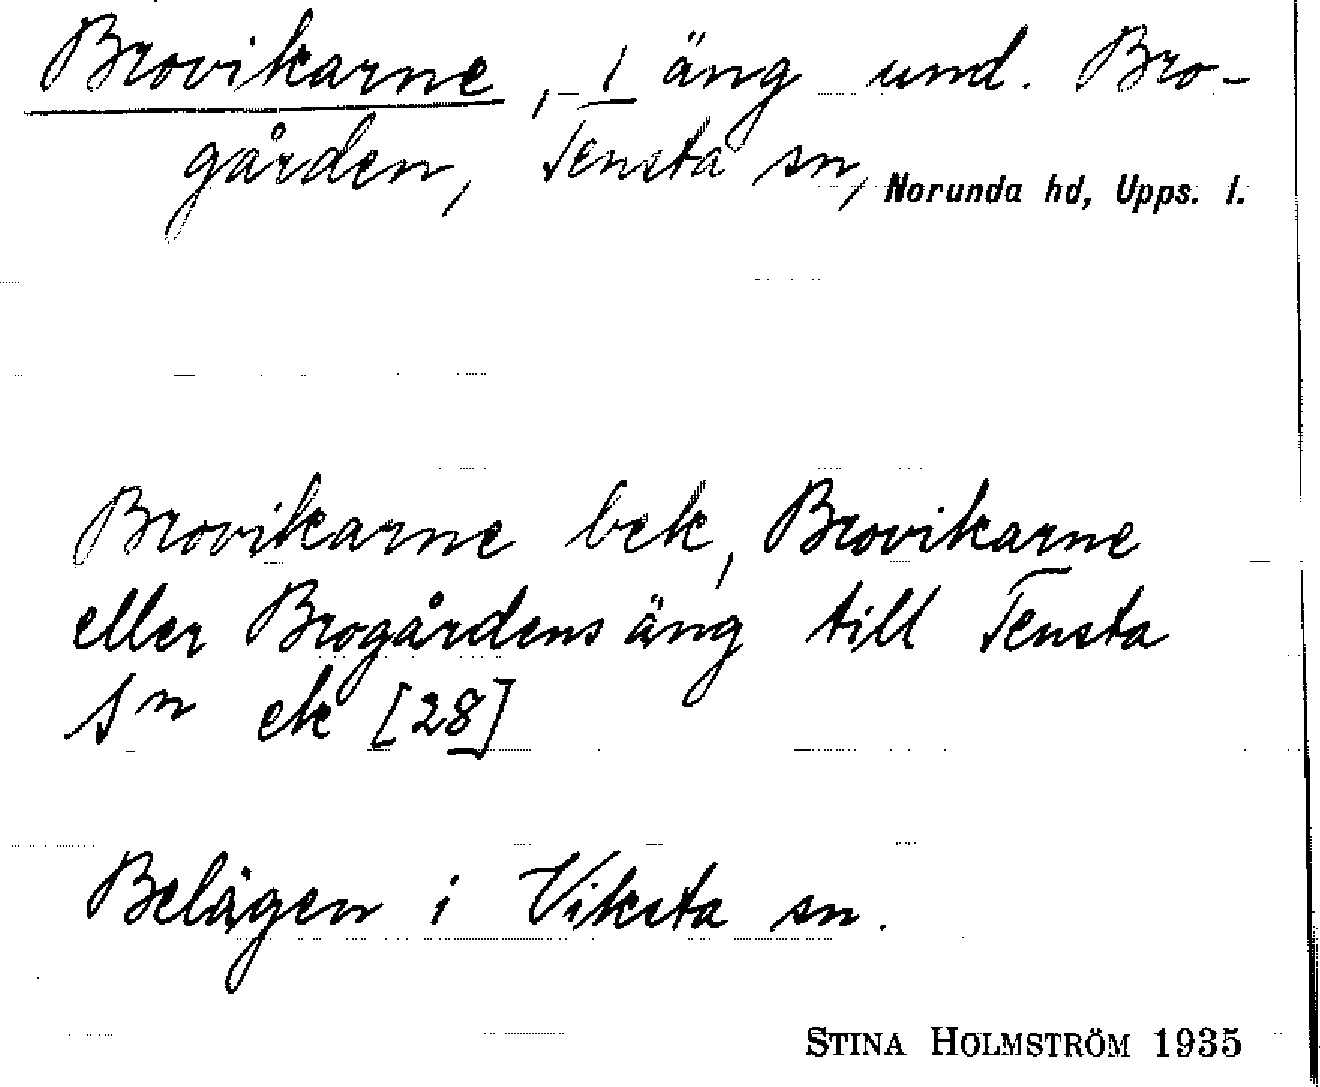 Brovikarne, 1 äng und. Bro-
gården, Tensta sn, Norunda hd, Upps. l.
Brovikarne bek, Brovikarne
eller Brogårdens äng till Tensta
Sn ek [28]
Belägen i Viksta sn.
STINA HOLMSTRÖM 1935